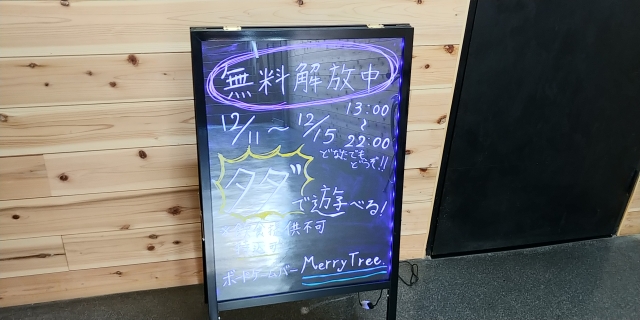 無料解放中
12/11～12/15 13:00～22:00
どなたでもどうぞ!!
タダで遊べる!
供不可
ボードゲームバー MerryTree.